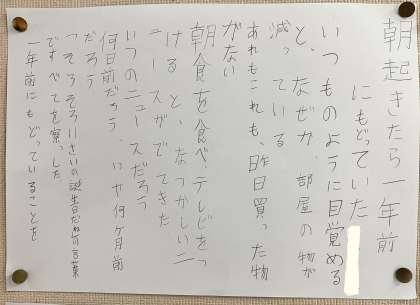 朝起きたら一年前
にもどっていた
いつものように目覚める
と、なぜか、部屋の物が
減っている
あれもこれも、昨日買った物
がない
朝食を食べ、テレビをつ
ける と、なつかしいニ
ュースがでてきた
いつのニュースだろう
何日前だろう、いや何ヶ月前
だろう
「そろそろ11さいの誕生日だね」の言葉
ですべてを察した
一年前にもどっていることを